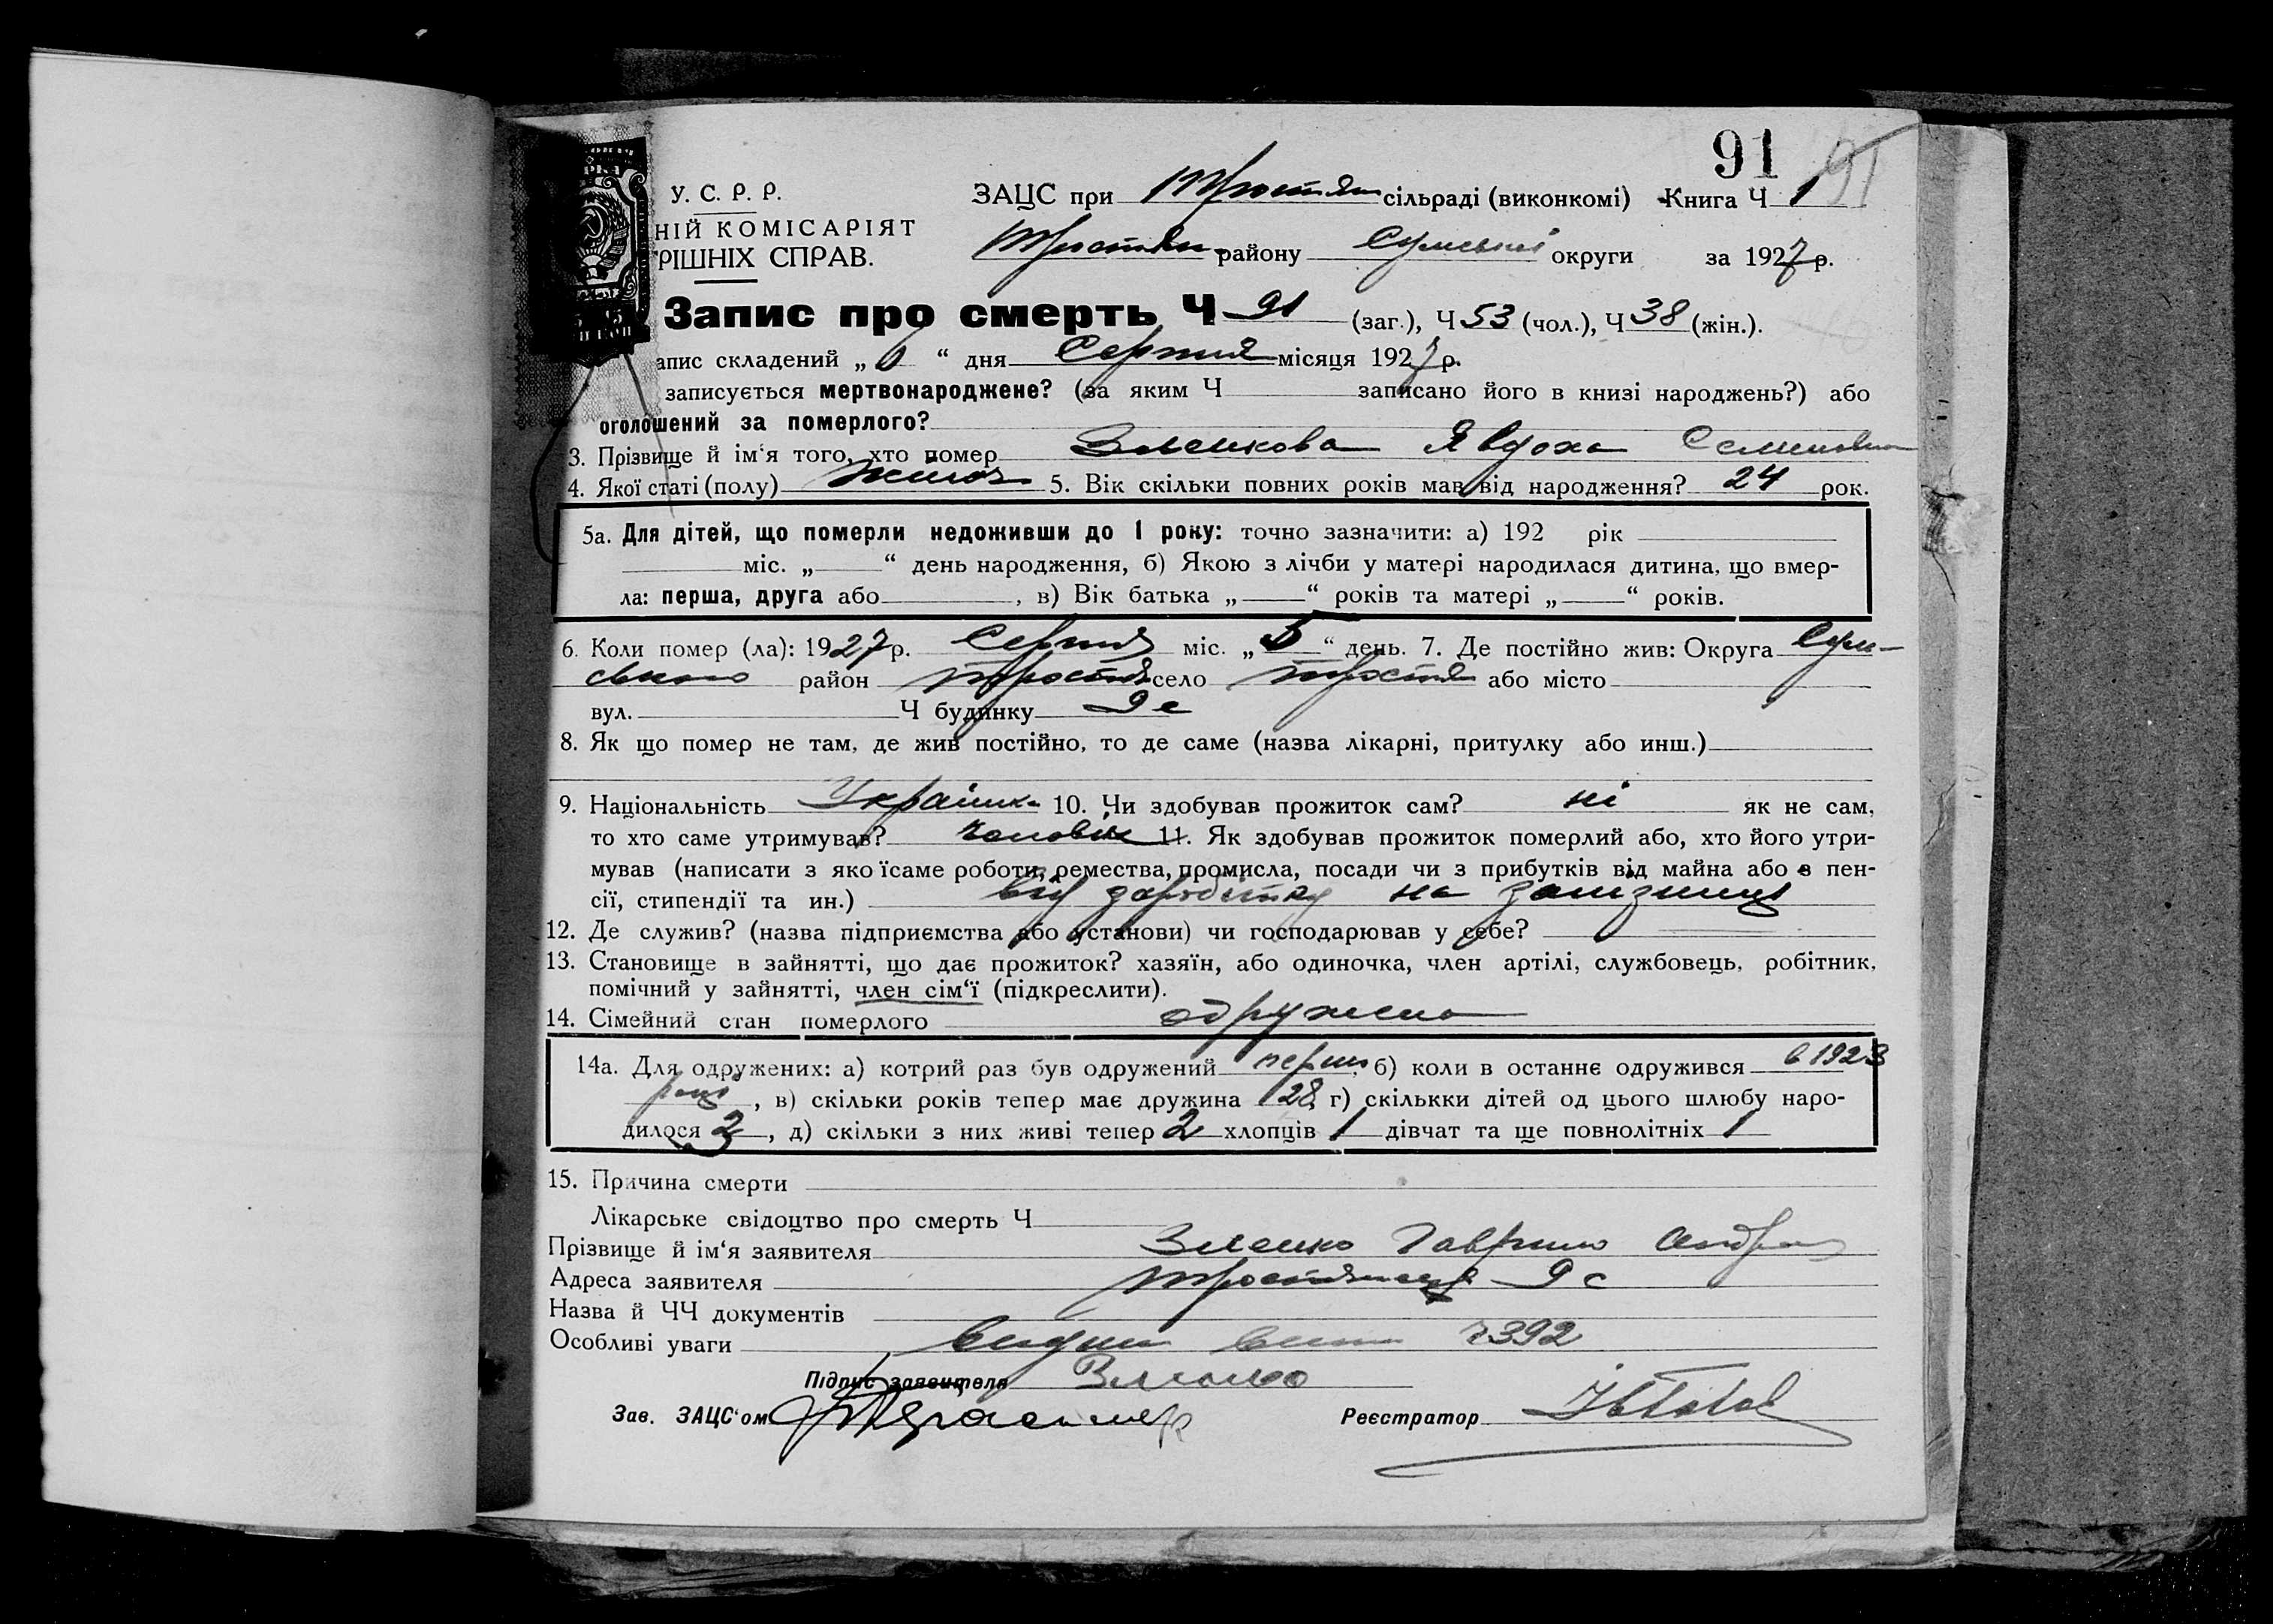 91 91
У. С. Р. Р. ЗАЦС при Тростян сільраді (виконкомі) Книга Ч 1
НІЙ КОМІСАРІЯТ
Тростян району Сумської округи за 1927 р.
РІШНІХ СПРАВ.
Запис про смерть Ч 91 (заг.), Ч 53 (чол.), Ч 38 (жін.).
апис складений „ “ дня Серпня місяця 1927 р.
записується мертвонароджене? (за яким Ч записано його в книзі народжень?) або
оголошений за померлого?
3. Прізвище й ім‘я того, хто помер Зленкова Явдоха Семеновна
4. Якої статі (полу) жіноч 5. Вік скільки повних років мав від народження? 24 рок.
5а. Для дітей, що померли недоживши до 1 року: точно зазначити: а) 192 рік
міс. „ “ день народження, б) Якою з лічби у матері народилася дитина, що вмер-
ла: перша, друга або , в) Вік батька „ “ років та матері „ “ років.
6. Коли помер (ла): 1927 р. Серпня міс. „ 5 “ день. 7. Де постійно жив: Округа Сум-
ського район Тростян село Тростян або місто
вул. Ч будинку 9 с
8. Як що помер не там, де жив постійно, то де саме (назва лікарні, притулку або инш.)
9. Національність Українка 10. Чи здобував прожиток сам? ні як не сам,
то хто саме утримував? чоловік 11. Як здобував прожиток померлий або, хто його утри-
мував (написати з яко їсаме роботи, ремества, промисла, посади чи з прибутків від майна або в пен-
сії, стипендії та ин.) від заробітку на залізниці
12. Де служив? (назва підприємства або установи) чи господарював у себе?
13. Становище в зайнятті, що дає прожиток? хазяїн, або одиночка, член артілі, службовець, робітник,
помічний у зайнятті, член сім‘ї (підкреслити).
14. Сімейний стан померлого одружена
14а. Для одружених: а) котрий раз був одружений перш , б) коли в останнє одружився в 1923
році , в) скільки років тепер має дружина 28 г) скількки дітей од цього шлюбу наро-
дилося 2 , д) скільки з них живі тепер 2 хлопців 1 дівчат та ще повнолітніх 1
15. Причина смерти
Лікарське свідоцтво про смерть Ч
Прізвище й ім‘я заявителя Зленко Гаврило Андр
Адреса заявителя Тростянець 9 с
Назва й ЧЧ документів
Особливі уваги 392
Підпис заявителя Зленко
Зав. ЗАЦС‘ом Реєстратор